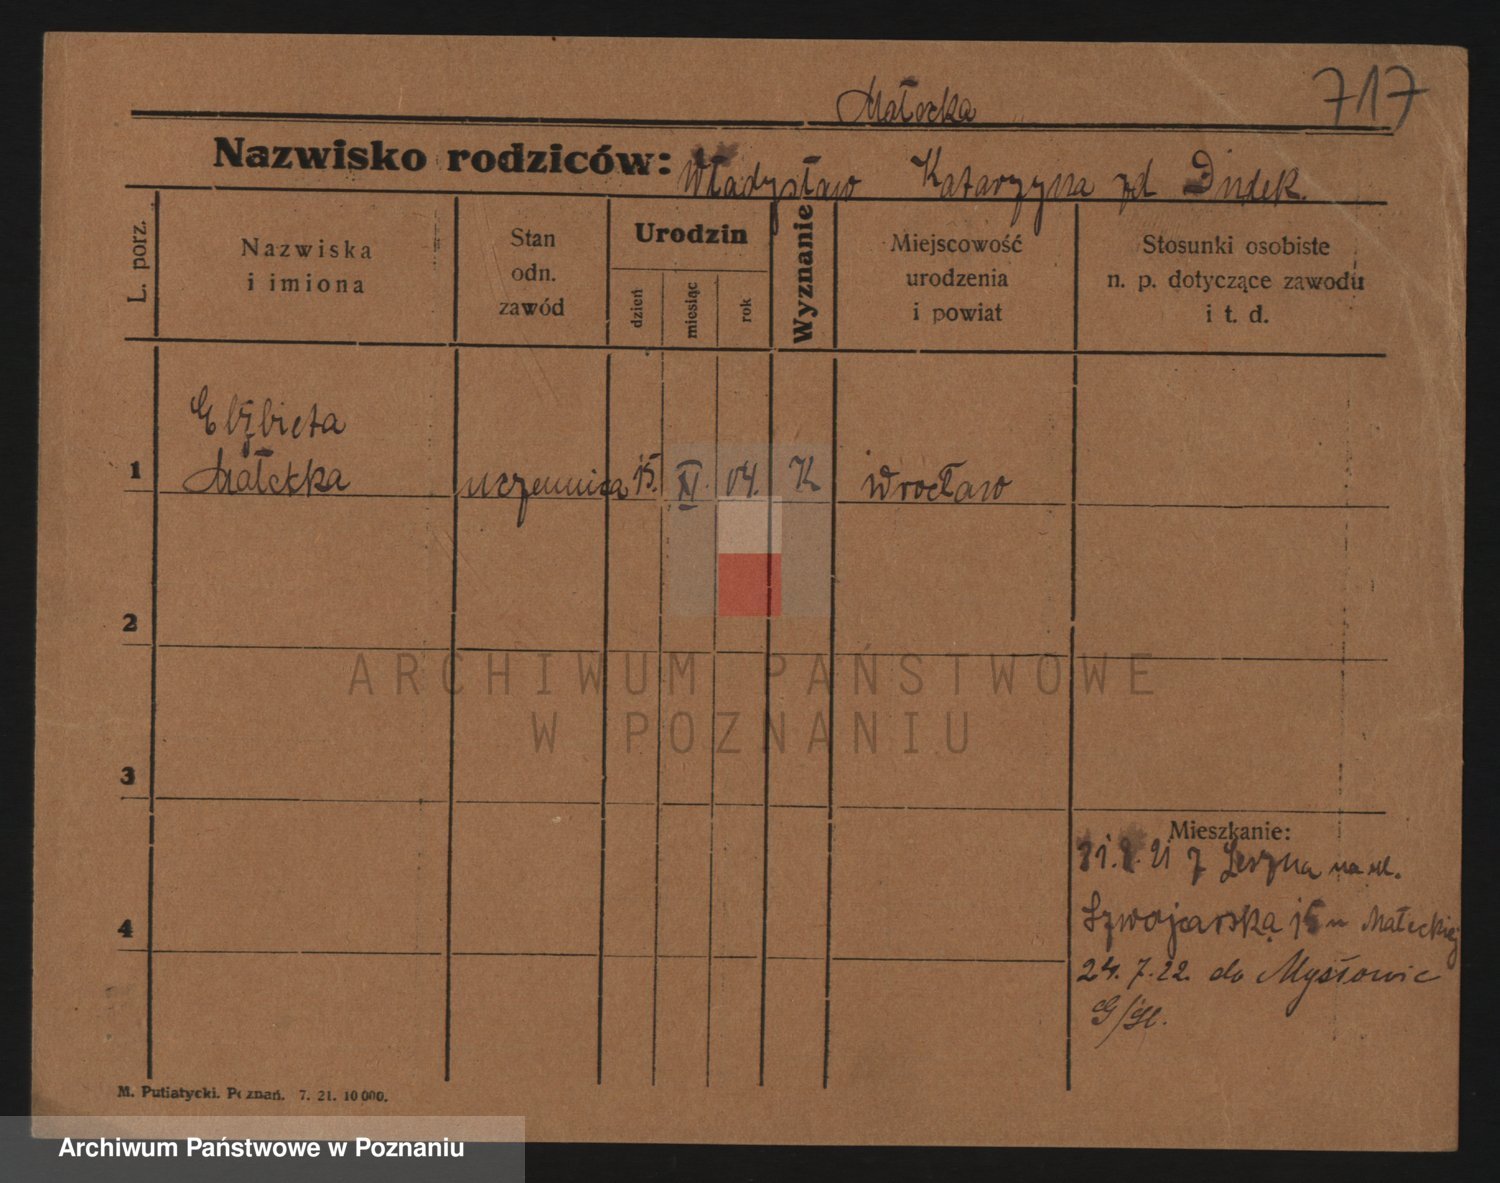 717
Małecka
Nazwisko rodziców: Władysław Katarzyna zd Dudek.
L. porz.
Nazwiska
i imiona
Stan
odn.
zawód
Urodzin
dzień
miesiąc
rok
Wyznanie
Miejscowość
urodzenia
i powiat
Stosunki osobiste
n. p. dotyczące zawodu
i t. d.
Elżbieta
1 Małecka uczennica 15. XI. 04. K Wrocław
2
3
4
Mieszkanie:
21 z Leszna na ul.
Szwajcarską 15 u Małeckiej
24. 7. 22. do Mysłowic
G/Śl.
M. Putiatycki. Poznań. 7. 21. 10 000.
ARCHIWUM PAŃSTWOWE
W POZNANIU
Archiwum Państwowe w Poznaniu